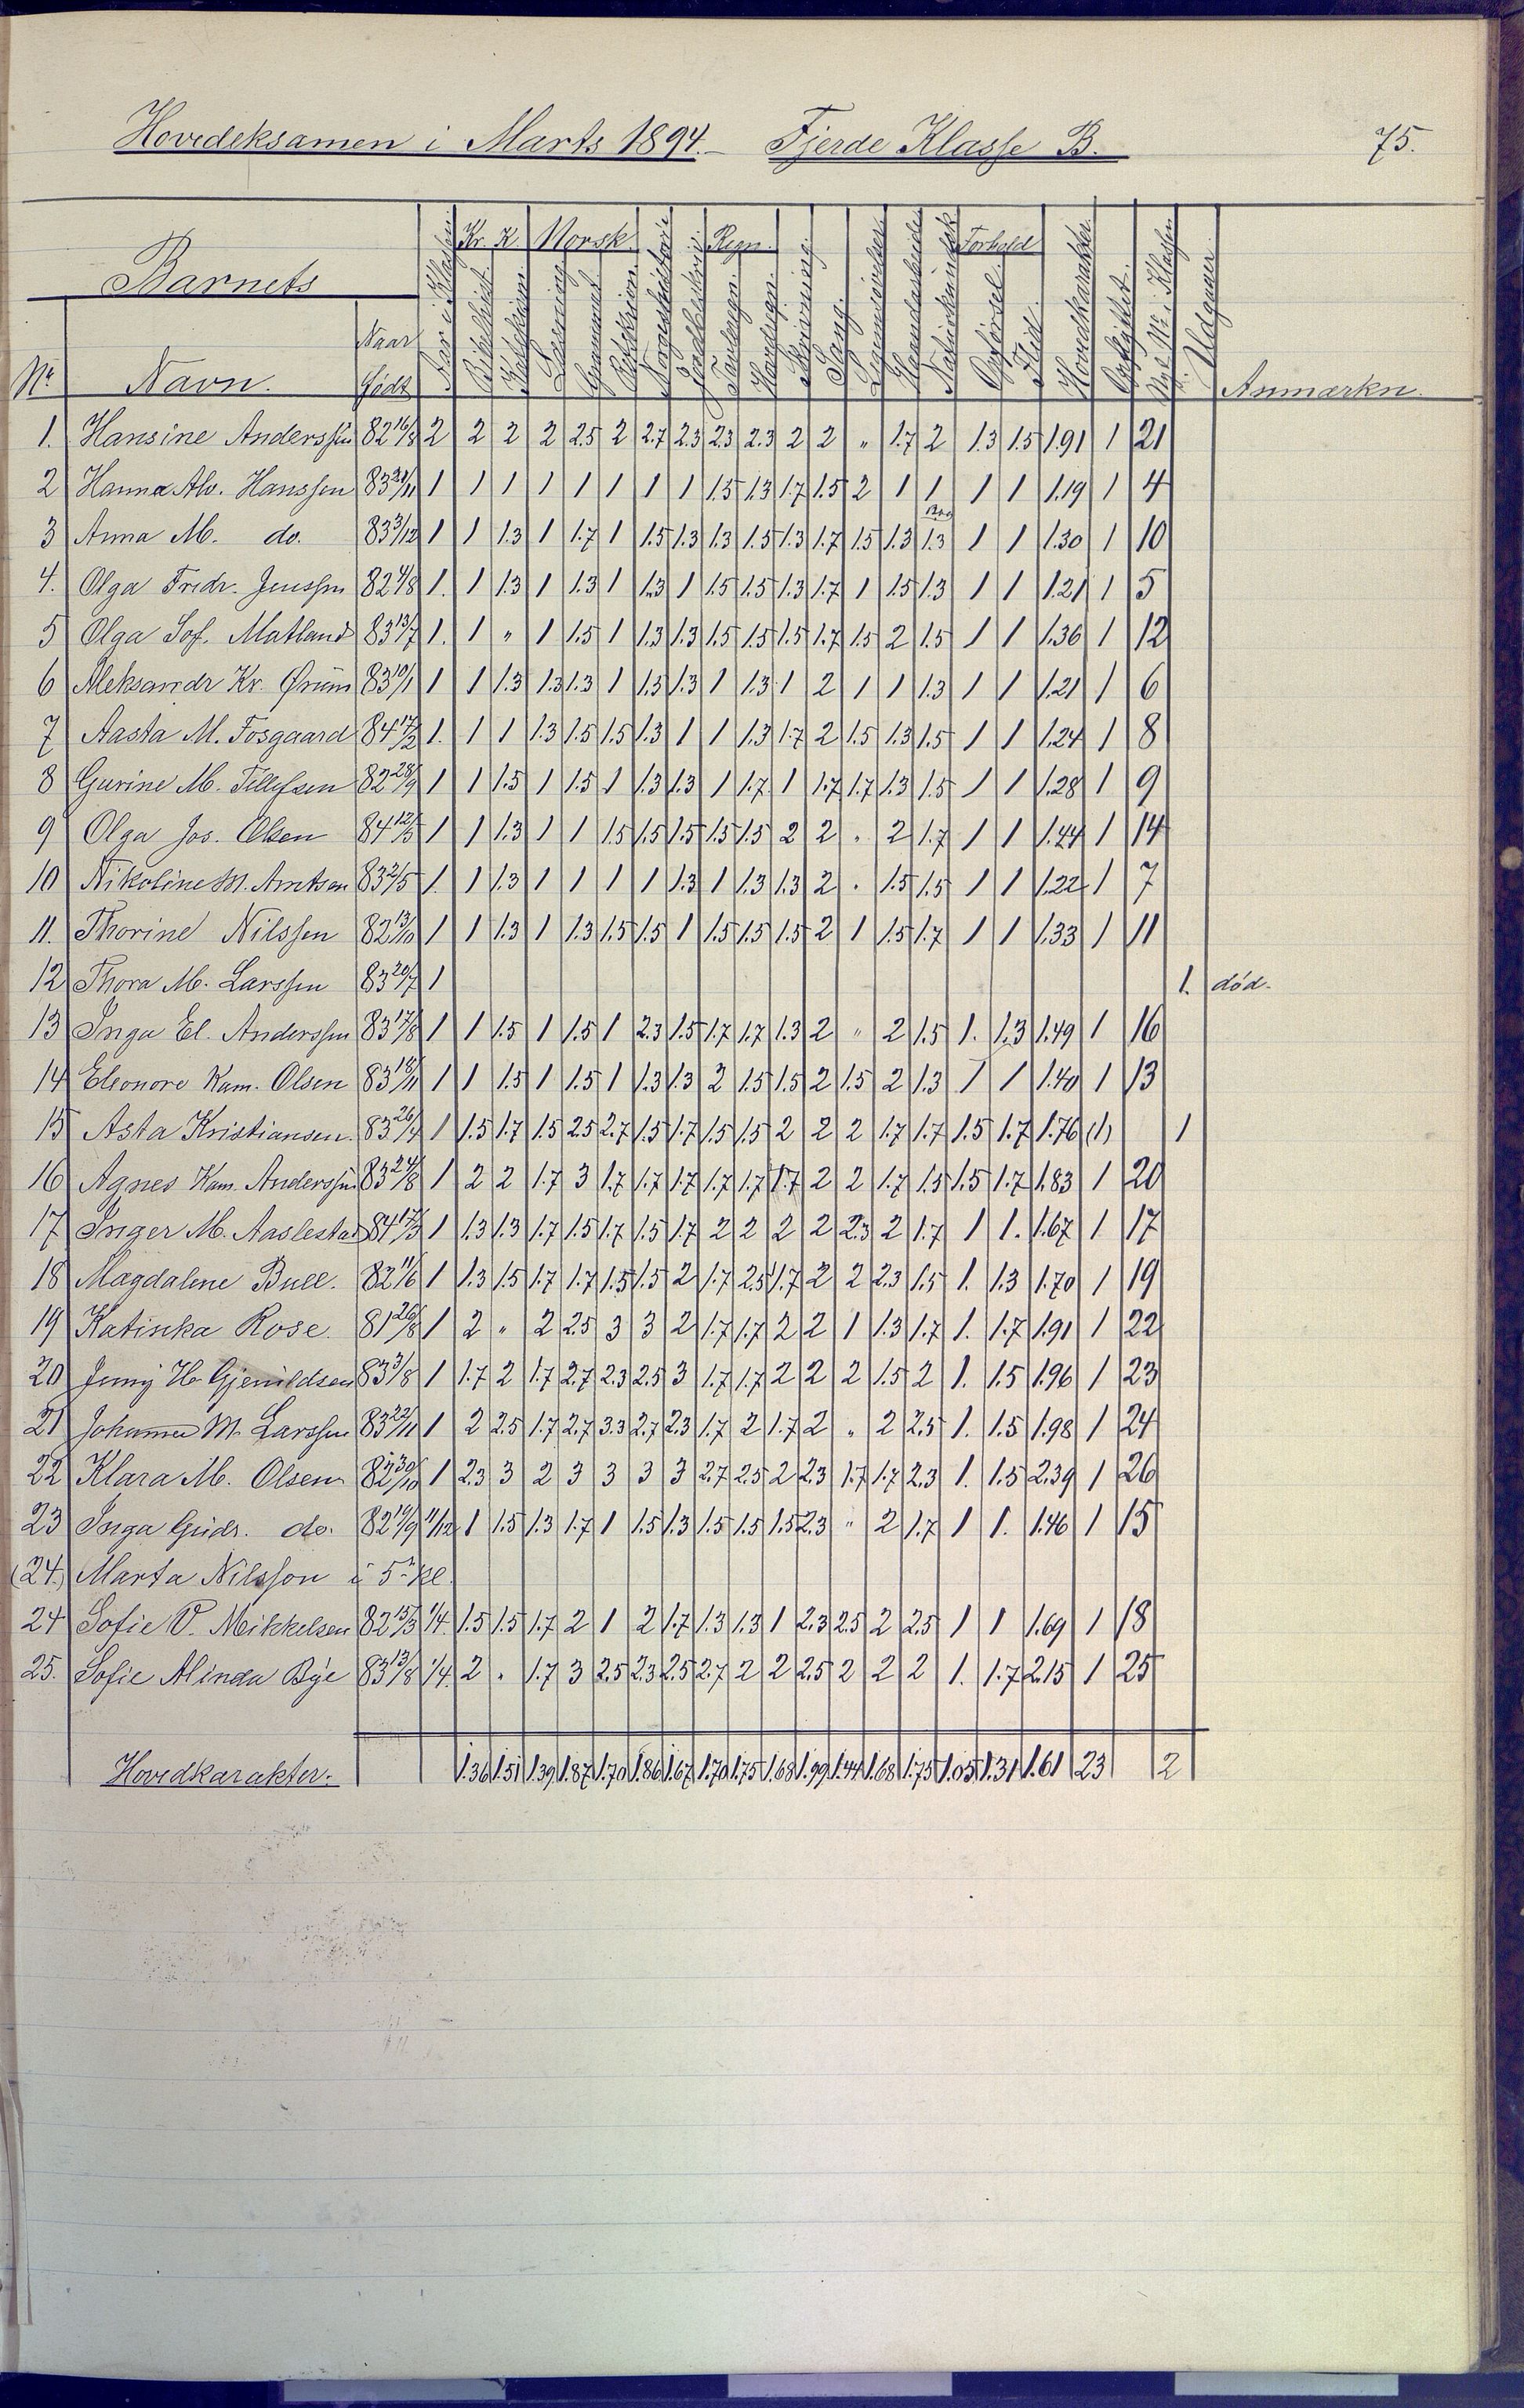 Hovedeksamen i Marts 1894. – Fjerde Klasse B. 75.
Kr. K. Norsk. Regn. Forhold
Barnets
Nr. Navn. Naar født Aar i Klassen Bibelhist. Læsning Grammat. Tavleregn. Hovedregn. Skrivning. Sang. Opførsel. Flid. Hovedkarakter. Opflyttet. Udgaaer. Anmærkn.
1. Hansine Anderssen 82 16/8 2 2 2 2 2.5 2 2.7 2.3 2.3 2.3 2 2 " 1.7 2 1.3 1.5 1.91 1 21
2 Hanna Alv. Hanssen 83 21/11 1 1 1 1 1 1 1 1 1.5 1.3 1.7 1.5 2 1 1 1 1 1.19 1 4
3 Anna M. do. 83 3/12 1 1 1.3 1 1.7 1 1.5 1.3 1.3 1.5 1.3 1.7 1.5 1.3 1.3 1 1 1.30 1 10
4. Olga Fredr. Jenssen 82 4/8 1. 1 1.3 1 1.3 1 1.3 1 1.5 1.5 1.3 1.7 1 1.5 1.3 1 1 1.21 1 5
5 Olga Sof. Matland 83 13/7 1. 1 " 1 1.5 1 1.3 1.3 1.5 1.5 1.5 1.7 1.5 2 1.5 1 1 1.36 1 12
6 Aleksandr Kr. Ørum 83 10/1 1 1 1.3 1.3 1.3 1 1.3 1.3 1 1.3 1 2 1 1 1.3 1 1 1.21 1 6
7 Aasta M. Fosgaard 84 17/2 1. 1 1 1.3 1.5 1.5 1.3 1 1 1.3 1.7 2 1.5 1.3 1.5 1 1 1.24 1 8
8 Gurine M. Tellefsen 82 28/9 1 1 1.5 1 1.5 1 1.3 1.3 1 1.7 1 1.7 1.7 1.3 1.5 1 1 1.28 1 9
9 Olga Jos. Olsen 84 12/5 1 1 1.3 1 1 1.5 1.5 1.5 1.5 1.5 2 2 " 2 1.7 1 1 1.44 1 14
10 Nikoline M. Arntsen 83 2/5 1. 1 1.3 1 1 1 1 1.3 1 1.3 1.3 2 " 1.5 1.5 1 1 1.22 1 7
11. Thorine Nilssen 82 13/10 1 1 1.3 1 1.3 1.5 1.5 1 1.5 1.5 1.5 2 1 1.5 1.7 1 1 1.33 1 11
12 Thora M. Larssen 83 20/7 1 1. død.
13 Inga El. Anderssen 83 17/8 1 1 1.5 1 1.5 1 2.3 1.5 1.7 1.7 1.3 2 " 2 1.5 1. 1.3 1.49 1 16
14 Eleonore Kam. Olsen 83 18/11 1 1 1.5 1 1.5 1 1.3 1.3 2 1.5 1.5 2 1.5 2 1.3 1 1 1.40 1 13
15 Asta Kristiansen. 83 26/4 1 1.5 1.7 1.5 2.5 2.7 1.5 1.7 1.5 1.5 2 2 2 1.7 1.7 1.5 1.7 1.76 (1) 1
16 Agnes Kam. Anderssen 83 24/8 1 2 2 1.7 3 1.7 1.7 1.7 1.7 1.7 1.7 2 2 1.7 1.5 1.5 1.7 1.83 1 20
17 Inger M. Aaslestad 84 17/3 1 1.3 1.3 1.7 1.5 1.7 1.5 1.7 2 2 2 2 2.3 2 1.7 1 1. 1.67 1 17
18 Magdalene Bull. 82 11/6 1 1.3 1.5 1.7 1.7 1.5 1.5 2 1.7 2.5 1.7 2 2 2.3 1.5 1. 1.3 1.70 1 19
19 Katinka Rose. 81 26/8 1 2 " 2 2.5 3 3 2 1.7 1.7 2 2 1 1.3 1.7 1. 1.7 1.91 1 22
20 Jenny H. Gjemildsen 83 3/8 1 1.7 2 1.7 2.7 2.3 2.5 3 1.7 1.7 2 2 2 1.5 2 1. 1.5 1.96 1 23
21 Johanna M. Larssen 83 22/11 1 2 2.5 1.7 2.7 3.3 2.7 2.3 1.7 2 1.7 2 " 2 2.5 1. 1.5 1.98 1 24
22 Klara M. Olsen 82 30/10 1 2.3 3 2 3 3 3 3 2.7 2.5 2 2.3 1.7 1.7 2.3 1. 1.5 2.39 1 26
23 Inga Gudr. do. 82 19/9 11/12 1 1.5 1.3 1.7 1 1.5 1.3 1.5 1.5 1.5 2.3 " 2 1.7 1 1. 1.46 1 15
(24.) Marta Nilsson i 5te kl.
24 Sofie V. Mikkelsen 82 15/3 1/4. 1.5 1.5 1.7 2 1 2 1.7 1.3 1.3 1 2.3 2.5 2 2.5 1 1 1.69 1 18
25. Sofie Alinda Bye 83 13/8 1/4. 2 " 1.7 3 2.5 2.3 2.5 2.7 2 2 2.5 2 2 2 1. 1.7 2.15 1 25
Hovedkarakter. 1.36 1.51 1.39 1.87 1.70 1.86 1.67 1.70 1.75 1.68 1.99 1.44 1.68 1.75 1.05 1.31 1.61 23 2